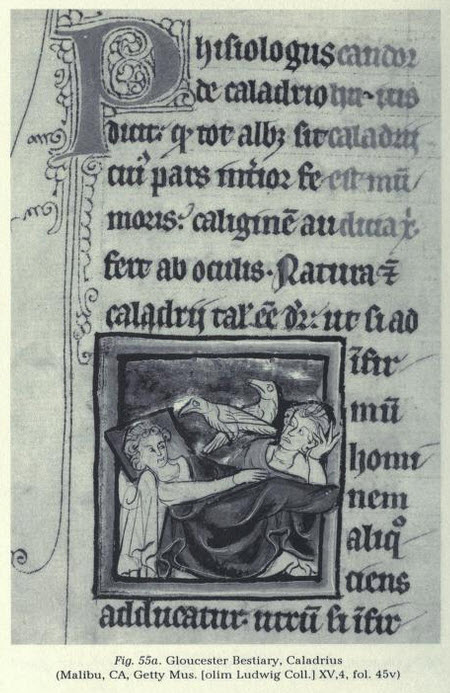 Phisiologus candor
de caladrio
dicit: qͥ tot albꝫ sit caladrij
pars fe est mū
moris: caliginē au
fert ab oculis. Natura
caladrij tal' eē dr̄: ut si ad
īfir
mū
homi
nem
aliqͦ
ciens
adducatur. utrū si īfir
Fig. 55a. Gloucester Bestiary, Caladrius
(Malibu, CA, Getty Mus. [olim Ludwig Coll.] XV,4, fol. 45v)